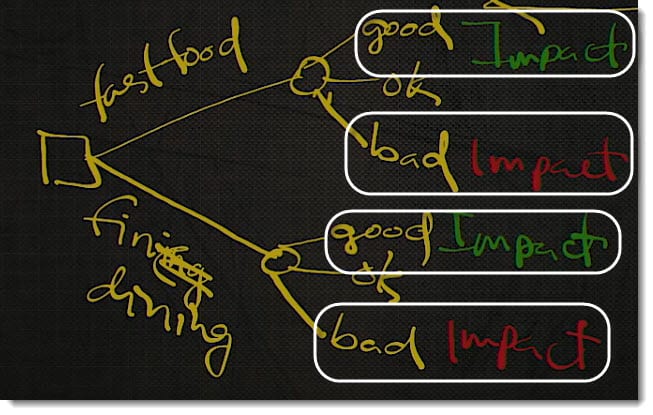 fast food
good Impact
ok
bad Impact
good Impact
ok
bad Impact
fine
dining